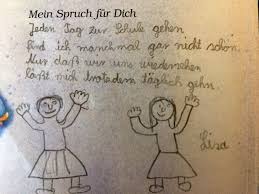 Mein Spruch für Dich
Jeden Tag zur Schule gehen
find ich manchmal gar nicht schön.
Nur daß wir uns wiedersehen
läßt mich trotzdem täglich gehn.
Lisa